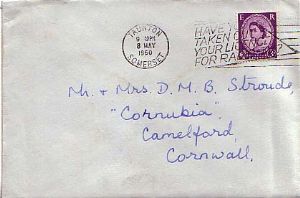 TAUNTON
9 - PM
8 MAY
1960
SOMERSET
HAVE YOU
TAKEN OUT
YOUR LICENCE
FOR RADIO
E R
Mr. & Mrs. D. M. B. Stroude
"Cornubia",
Camelford,
Cornwall.